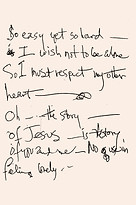 So easy yet so hard —
I wish not to be alone
So I must respect my other
heart —
Oh — the story —
of Jesus — is the story
of you and me — No use in
feeling lonely —